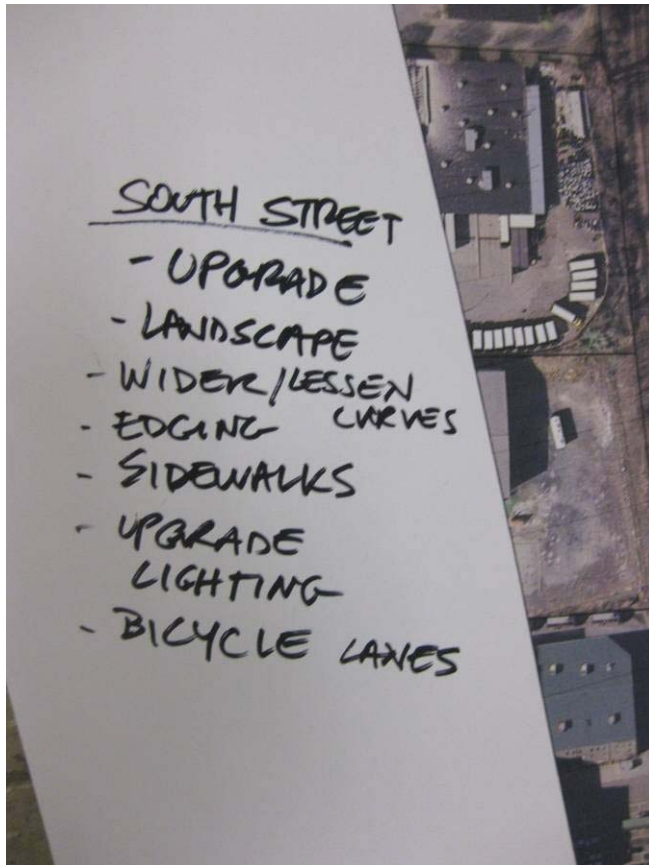 SOUTH STREET
- UPGRADE
- LANDSCAPE
- WIDER/LESSEN
CURVES
- EDGING
- SIDEWALKS
- UPGRADE
LIGHTING
- BICYCLE LANES